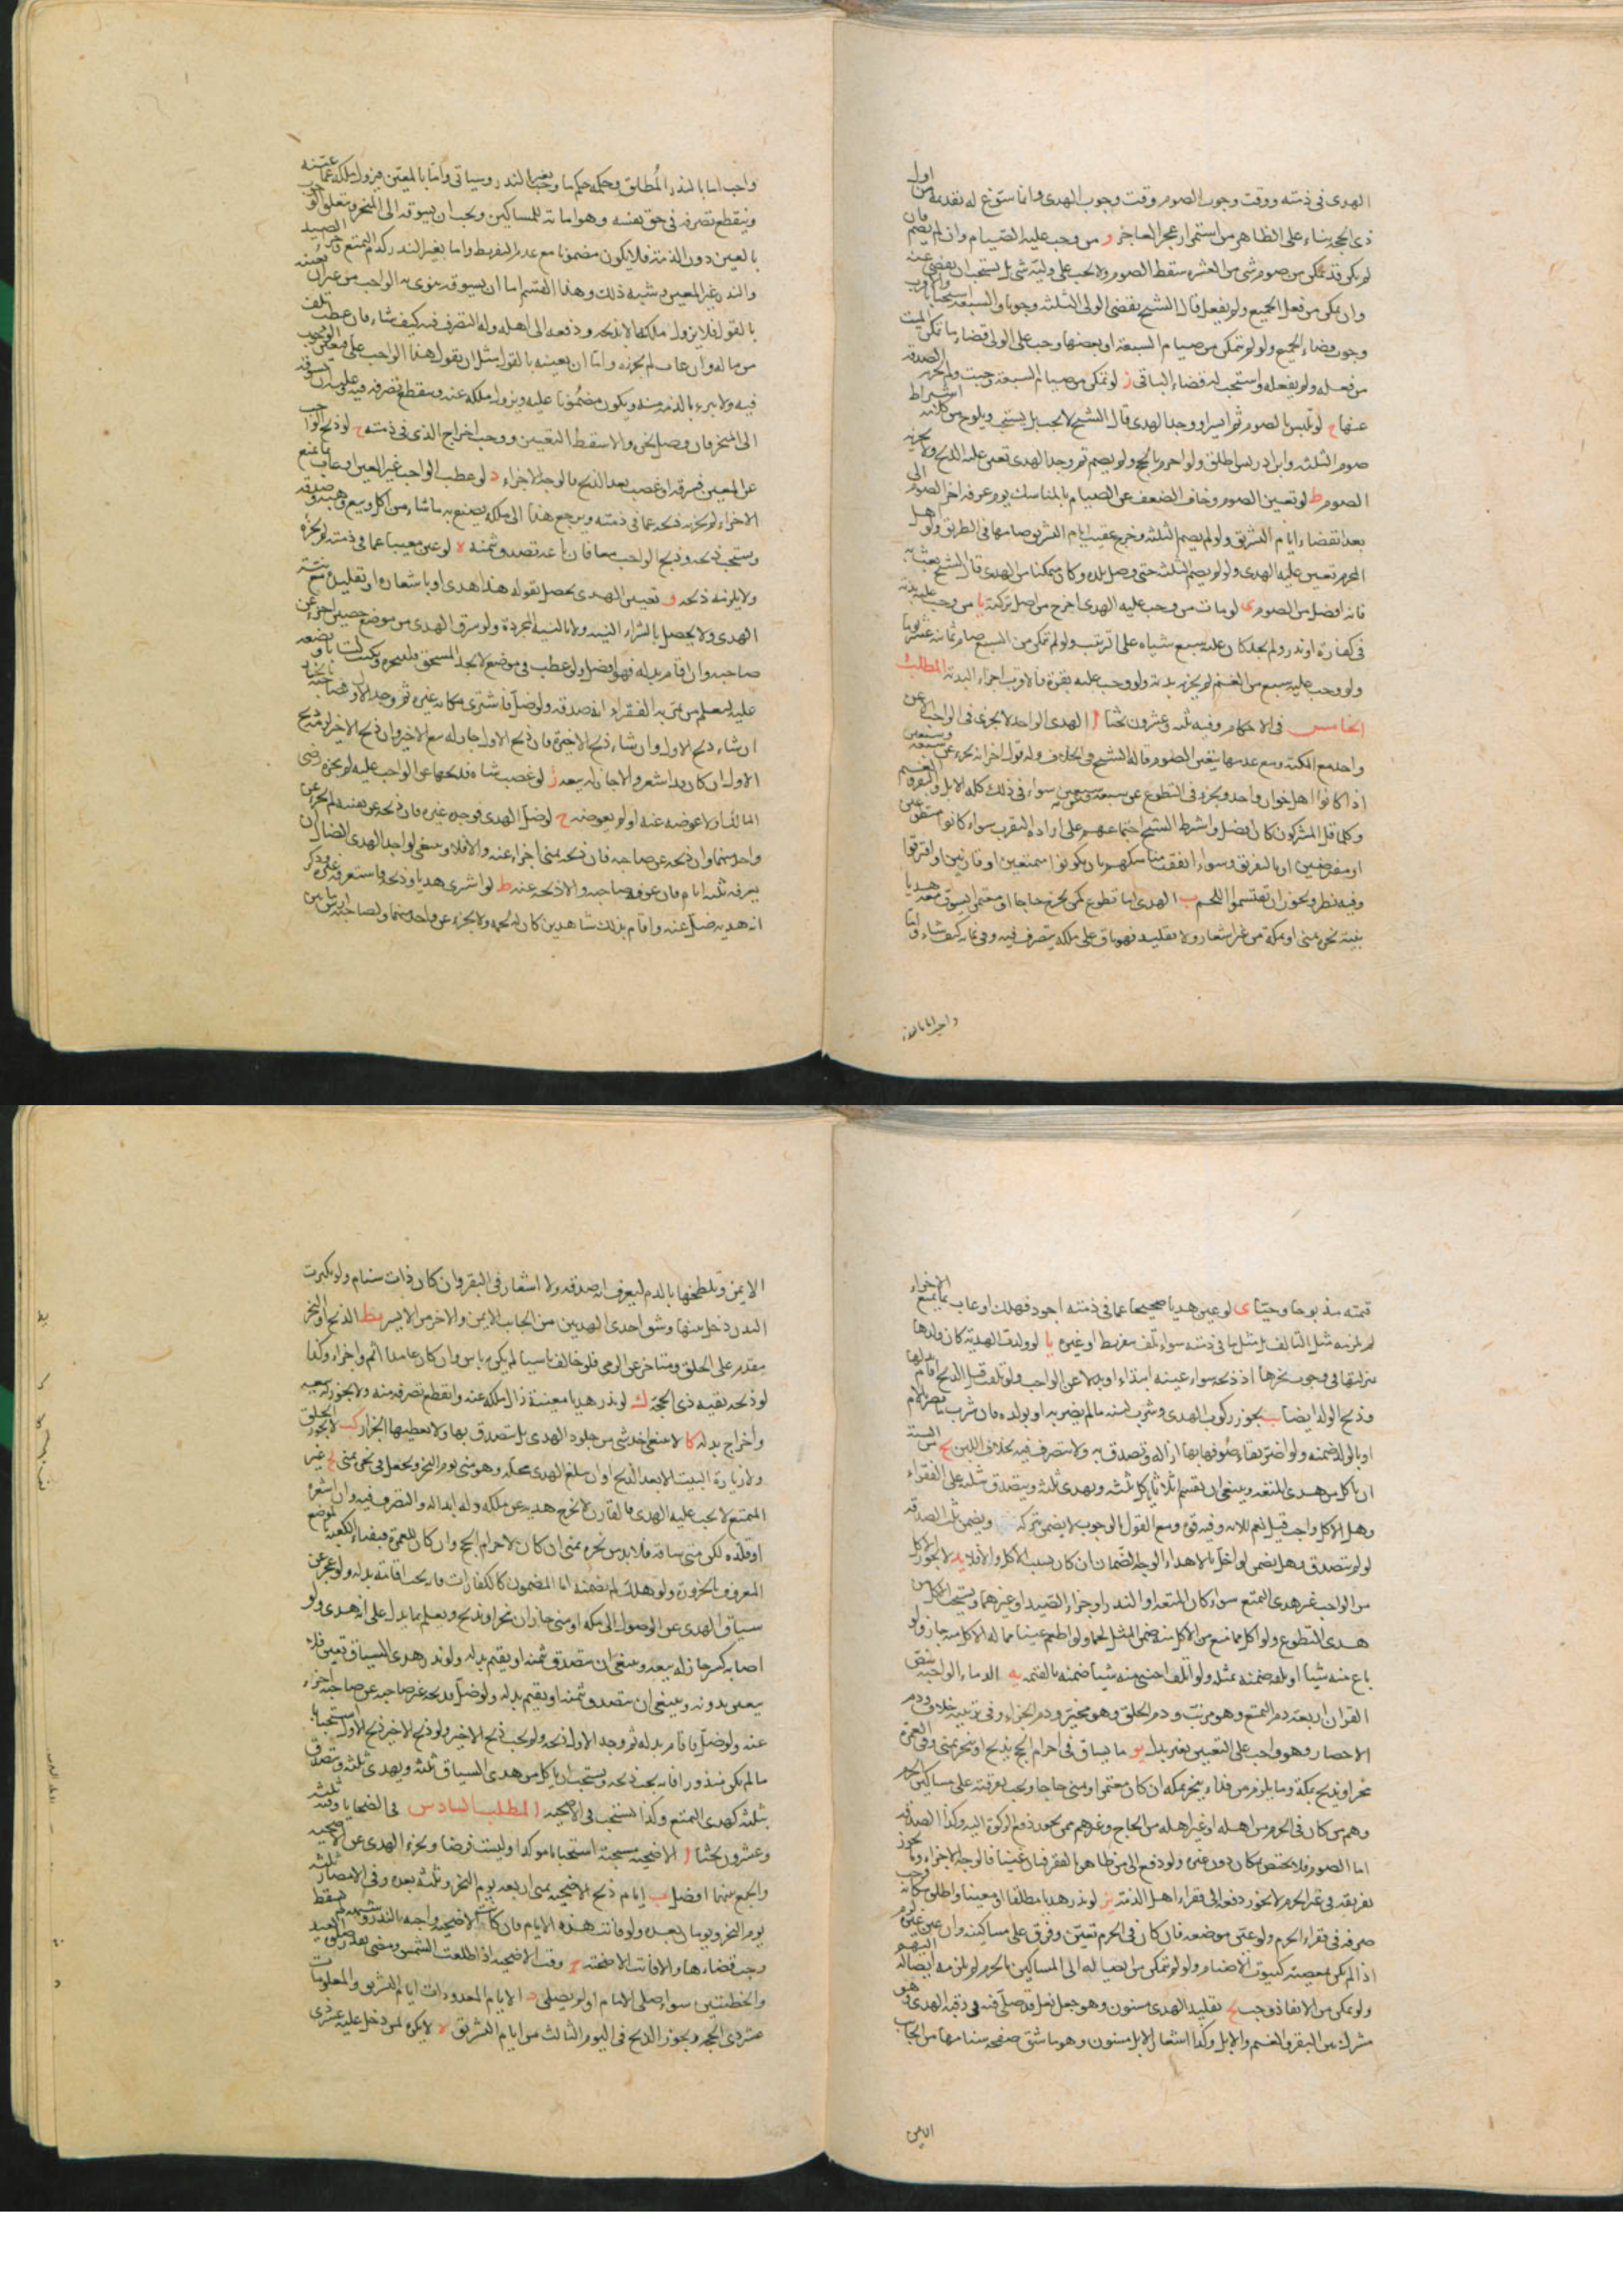 الهدى فى ذمته ووقت وجوب الصوم وقت وجوب الهدى وانما سوّغ له تقديمه من اول
ذى الحجة بناء على الظاهر من استمرار عجز العاجز و من وجب عليه الصيام وان لم يصم فان
لم يكن قد تمكن من صوم شئ من العشرة سقط الصوم ولا يجب على وليه شئ بل استحب ان يقضى عنه
وان تمكن من فعل الجميع ولم يفعل قال الشيخ يقضى الولى الثلثة وجوبا والسبعة استحبابا والاقرب
وجوب قضاء الجميع ولو لم يتمكن من صيام السبعة او بعضها وجب على الولى قضاء ما تمكن الميت
من فعله ولم يفعله واستحب له قضاء الباقى ز لو تمكن من صيام السبعة وجبت ولم يجزه الصدقة
عنها ح لو تلبس بالصوم ثم ايسر او وجد الهدى قال الشيخ لا يجب بل يستحب ويلوح من كلامه اشتراط
صوم الثلثة وابن ادريس اطلق ولو احرم بالحج ولم يصم ثم وجد الهدى تعين عليه الذبح ولا يجزيه
الصوم ط لو تعين الصوم وخاف الضعف عن الصيام بالمناسك يوم عرفة اخر الصوم الى
بعد انقضاء ايام التشريق ولو لم يصم الثلثة وخرج عقيب ايام التشريق صامها فى الطريق ولو اهل
المحرم تعين عليه الهدى ولو لم يصم الثلثة حتى وصل بلده وكان متمكنا من الهدى قال الشيخ يبعث به
فانه افضل من الصوم ى لو مات من وجب عليه الهدى اخرج من اصل تركته يا من وجب عليه بدنة
فى كفارة او نذر ولم يجد كان عليه سبع شياه على الترتيب ولو لم يتمكن من السبع صام ثمانية عشر يوما
ولو وجب عليه سبع من الغنم لم يجزه بدنة ولو وجب عليه بقرة فالاقرب اجزاء البدنة المطلب
الخامس فى الاحكام وفيه ثلثة وعشرون بحثا ا الهدى الواحد لا يجزى فى الواجب الا عن
واحد مع المكنة ومع عدمها يتعين الصوم قاله الشيخ فى الخلاف وله قول اخر انه يجزى عن سبعة وسبعين
اذا كانوا اهل خوان واحد ويجزى فى التطوع عن سبعة سواء فى ذلك كله الابل والبقر والغنم
وكلما قل المشركون كان افضل واشترط الشيخ اجتماعهم على ارادة التقرب سواء كانوا متطوعين
او مفترضين او بالتفريق وسواء اتفقت مناسكهم بان يكونوا متمتعين او قارنين او افترقوا
وفيه نظر ويجوز ان يقتسموا اللحم ب الهدى اما تطوع كمن يخرج حاجا او معتمرا يسوق معه هديا
بنية نحره بمنى او بمكة من غير اشعار ولا تقليد فهو باق على ملكه يتصرف فيه وفى نمائه كيف شاء واما
واجب اما بالنذر
واجب اما بالنذر المطلق وحكمه حكم ما وجب بغير النذر وسياتى واما بالمعين فيزول ملكه عما عينه
وينقطع تصرفه فى حق نفسه وهو امانة للمساكين ويجب ان يسوقه الى المنحر ويتعلق الوجوب
بالعين دون الذمة فلا يكون مضمونا مع عدم التفريط واما بغير النذر كدم التمتع وجزاء الصيد
والنذر غير المعين وشبه ذلك وهذا القسم اما ان يسوقه ينوى به الواجب من غير ان يعينه
بالقول فلا يزول ملكه الا بذبحه ودفعه الى اهله وله التصرف فيه كيف شاء فان عطب تلف
من ماله وان عاب لم يجزه واما ان يعينه بالقول مثل ان يقول هذا الواجب على فيتعين الوجوب
فيه ولا يبرء بالذمة منه ويكون مضمونا عليه ويزول ملكه عنه وينقطع تصرفه فيه وعليه ان يسوقه
الى المنحر فان وصل نحره والا سقط التعيين ووجب اخراج الذى فى ذمته ج لو ذبح الواجب
عن المعين فسرقه او غصب بعد الذبح فالوجه الاجزاء د لو عطب الواجب غير المعين او عاب بما يمنع
الاجزاء لم يجزه ذبحه عما فى ذمته ويرجع هذا الى ملكه يصنع به ما شاء من اكل وبيع وهبة وصدقة
ويستحب ذبحه وذبح الواجب معا فان باعه تصدق بثمنه ه لو عين معيبا عما فى ذمته لم يجزه
ولا يلزمه ذبحه و تعيين الهدى يحصل بقوله هذا هدى او باشعاره او تقليده مع نية
الهدى ولا يحصل بالشراء مع النية ولا بالنية المجردة ولو سرق الهدى من موضع حصين اجزء عن
صاحبه وان اقام بدله فهو افضل ولو عطب فى موضع لا يجد المستحق فلينحره ويكتب كتابا ويضعه
عليه ليعلم من يمر به الفقراء انه صدقة ولو ضل فاشترى مكانه غيره ثم وجد الاول فصاحبه بالخيار
ان شاء ذبح الاول وان شاء ذبح الاخير فان ذبح الاول جاز له بيع الاخير وان ذبح الاخير لم يذبح
الاول ان كان قد اشعره والا جاز له بيعه ز لو غصب شاة فذبحها عن الواجب عليه لم يجزه رضى
المالك ولا عوضه عنه او لم يعوضه ح لو ضل الهدى فوجده غيره فان ذبحه عن نفسه لم يجزء عن
واحد منهما وان ذبحه عن صاحبه فان ذبحه بمنى اجزاء عنه والا فلا وينبغى لواجد الهدى الضال ان
يعرفه ثلثة ايام فان عرفه صاحبه والا ذبحه عنه ط لو اشترى هديا وذبحه فاستعرفه غيره وذكر
انه هديه ضل عنه واقام بذلك شاهدين كان له لحمه ولا يجزء عن واحد منهما ولصاحبه الارش ما بين
قيمته مذبوحا وحيا ى لو عين هديا صحيحا عما فى ذمته اجود فهلك او عاب بما يمنع الاجزاء
لم يلزمه مثل التالف بل مثل ما فى ذمته سواء تلف بتفريط او غيره يا لو ولدت الهدية كان ولدها
بمنزلتها فى وجوب نحرها اذ ذبحه سواء عينه ابتداء او بدلا عن الواجب ولو تلفت قبل الذبح اقام بدلها
وذبح الولد ايضا يب يجوز ركوب الهدى وشرب لبنه ما لم يضر به او بولده فان شرب ما يضر بالام
او بالولد ضمنه ولو اضر بقاء صوفها بها ازاله وتصدق به ولا يتصرف فيه بخلاف اللبن يج من السنة
ان ياكل من هدى المتعة وينبغى ان يقسم اثلاثا ياكل ثلثه ويهدى ثلثه ويتصدق بثلثه على الفقراء
وهل الاكل واجب قيل نعم للاية وفيه قوة ومع القول بالوجوب لا يضمن بتركه ويضمن ثلث الصدقة
لو لم يتصدق وهل يضمن لو اخل بالاهداء الوجه الضمان ان كان بسبب الاكل والا فلا يد لا يجوز الاكل
من الواجب غير هدى التمتع سواء كان المتعة او النذر او جزاء الصيد او غيرهما ويستحب الاكل من
هدى التطوع ولو اكل مما منع من الاكل منه ضمن المثل لحما ولو اطعم غنيا مما له الاكل منه جاز ولو
باع منه شيئا او اتلفه ضمنه بمثله ولو اتلف اجنبى منه شيئا ضمنه بالقيمة يه الدماء الواجبة بنص
القران اربعة دم التمتع وهو مرتب ودم الحلق وهو مخير ودم الجزاء وفى ترتيبه خلاف ودم
الاحصار وهو واجب على التعيين بغير بدل يو ما يساق فى احرام الحج يذبح او ينحر بمنى وفى العمرة
ينحر او يذبح بمكة وما يلزم من فداء ينحر بمكة ان كان معتمرا او بمنى حاجا ويجب تفرقته على مساكين الحرم
وهم من كان فى الحرم من اهله او غير اهله من الحاج وغيرهم ممن يجوز دفع الزكوة اليه وكذا الصدقة
اما الصوم فلا يختص بمكان دون غيره ولو دفع الى من ظاهره الفقر فبان غنيا فالوجه الاجزاء وما يجوز
تفريقه فى غير الحرم لا يجوز دفعه الى فقراء اهل الذمة يز لو نذر هديا مطلقا او معينا واطلق مكانه وجب
صرفه فى فقراء الحرم ولو عين موضعه فان كان فى الحرم تعين وفرق على مساكينه وان عين غيره لزم
اذا لم يكن معصية كبيوت الاصنام ولو لم يتمكن من ايصاله الى المساكين بالحرم لم يلزمه ايصاله اليهم
ولو تمكن من الانفاذ وجب يح تقليد الهدى مسنون وهو جعل نعل قد صلى فيه فى رقبة الهدى وهو
مشترك بين البقر والغنم والابل وكذا اشعار الابل مسنون وهو ما شق صفحة سنامها من الجانب
الايمن
الايمن وتلطخها بالدم ليعرف انه صدقة ولا اشعار فى البقر وان كان ذات سنام ولو تكثرت
البدن دخل بينها وشق احدى الهديين من الجانب الايمن والاخر من الايسر يط الذبح او النحر
مقدم على الحلق ومتاخر عن الرمى فلو خالف ناسيا لم يكن به باس وان كان عامدا اثم واجزاء وكذا
لو ذبحه بقية ذى الحجة ك لو نذر هديا معينة زال ملكه عنه وانقطع تصرفه منه ولا يجوز له بيعه
واخراج بدله كا لا ينبغى اخذ شئ من جلود الهدى بل يتصدق بها ولا يعطيها الجزار كب لا يجوز الحلق
ولا زيارة البيت الا بعد الذبح او ان يبلغ الهدى محله وهو منى يوم النحر ويحصل فى نحره بمنى كج غير
المتمتع لا يجب عليه الهدى فالقارن لا يخرج هديه عن ملكه وله ابداله والتصرف فيه وان اشعره
او قلده لكن متى ساقه فلا بد من نحره بمنى ان كان لاحرام الحج وان كان للعمرة فبفناء الكعبة بالموضع
المعروف بالحزورة ولو هلك لم يضمنه اما المضمون كالكفارات فانه يجب اقامة بدله ولو عجز عن
سياق الهدى عن الوصول الى مكة او منى جاز ان ينحر او يذبح ويعلم بما يدل على انه هدى ولو
اصابه كسر جاز له بيعه وينبغى ان يتصدق بثمنه او يقيم بدله ولو نذر هدى السياق تعين فلا
يتعين بدونه وينبغى ان يتصدق بثمنه او يقيم بدله ولو ضل فذبحه غير صاحبه عن صاحبه اجزاء
عنه ولو ضل فاقام بدله ثم وجد الاول ذبحه ولم يجب ذبح الاخير ولو ذبح الاخير ذبح الاول استحبابا
ما لم يكن منذورا فانه يجب ذبحه ويستحب ان ياكل من هدى السياق ثلثه ويهدى ثلثه ويتصدق
بثلثه كهدى التمتع وكذا يستحب فى الاضحية المطلب السادس فى الضحايا وفيه ثلثة
وعشرون بحثا ا الاضحية مستحبة استحبابا موكدا وليست فرضا ويجزء الهدى عن الاضحية
والجمع بينهما افضل ب ايام ذبح الاضحية بمنى اربعة يوم النحر وثلثة بعده وفى الامصار ثلثة
يوم النحر ويومان بعده ولو فاتت هذه الايام فان كانت الاضحية واجبة بالنذر وشبهه لم يسقط
وجب قضاءها والا فاتت الاضحية ج وقت الاضحية اذا طلعت الشمس ومضى بقدر صلوة العيد
والخطبتين سواء صلى الامام او لم يصلى د الايام المعدودات ايام التشريق والمعلومات
عشر ذى الحجة ويجوز الذبح فى اليوم الثالث من ايام التشريق ه لا يكره لمن دخل عليه عشر ذى